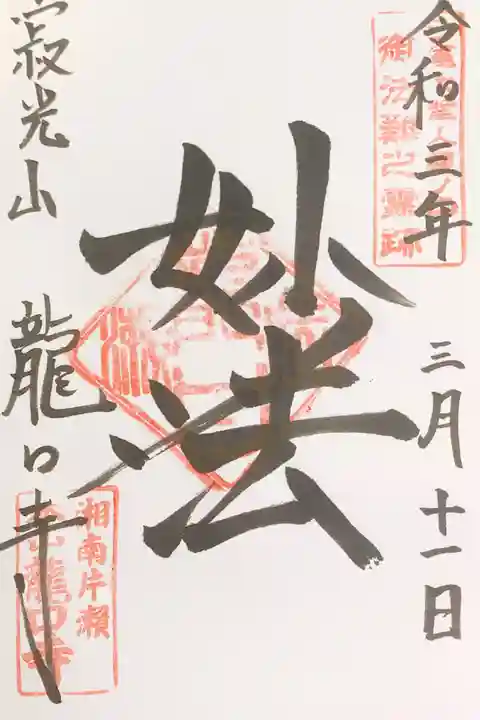 令和三年
三月十一日
御法難之霊跡
妙法
寂光山
龍口寺
湘南片瀬
龍口寺